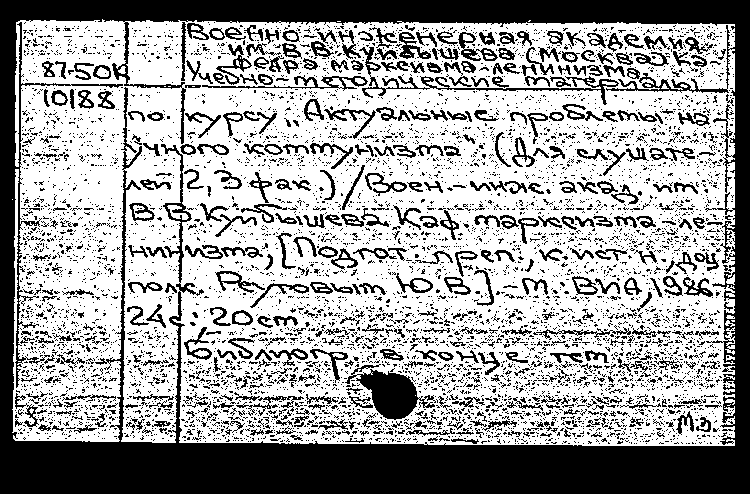 Военно-инженерная академия
им. В.В. Куйбышева (Москва). Ка-
федра марксизма-ленинизма.
87-50К Учебно-методические материалы
10188
по курсу „Актуальные проблемы на-
учного коммунизма“: (Для слушате-
лей 2,3 фак.) / Воен.-инж. акад. им.
В.В. Куйбышева. Каф. марксизма-ле-
нинизма; [Подгот. преп., к. ист. н., доц.
полк. Реутовым Ю.В.] - М.: ВИА, 1986.-
24с.; 20см.
Библиогр. в конце тем.
8
М.З.